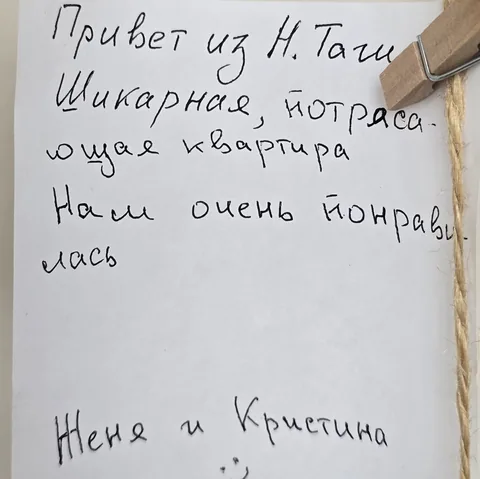 Привет из Н. Таги
Шикарная, потряса-
ющая квартира
Нам очень понрави-
лась
Женя и Кристина
:)